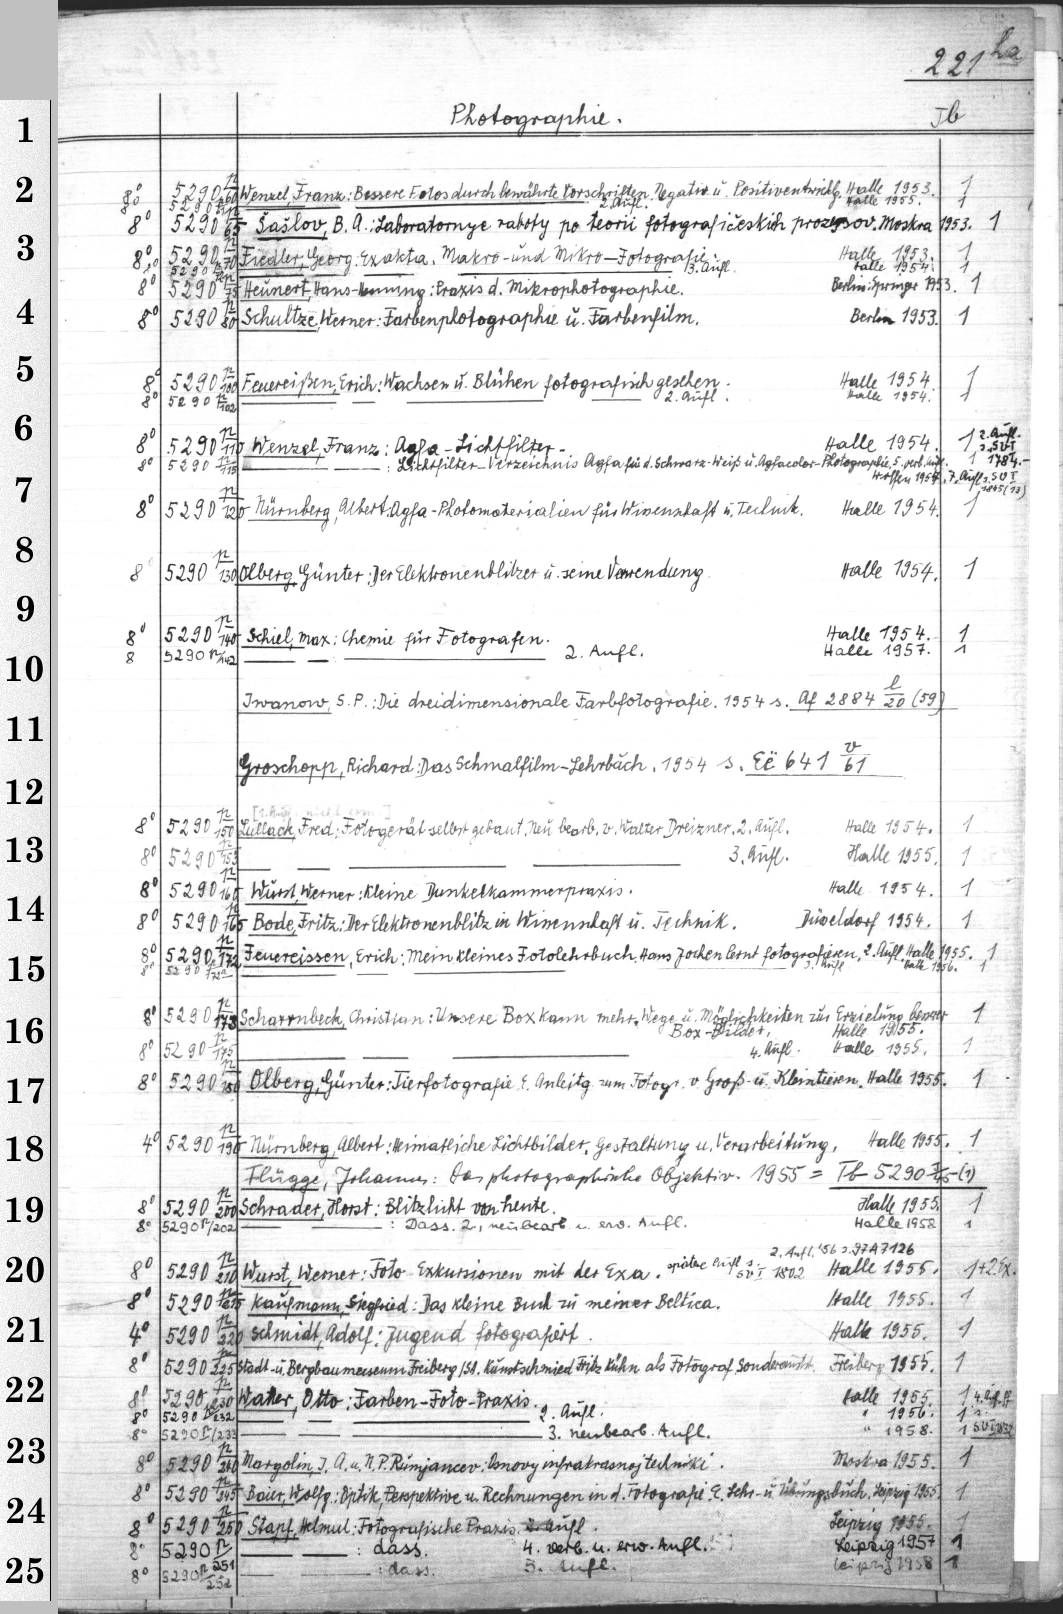 221 ha
Photographie.
Tb
1
2
8° 5290 n/60 Wenzel, Franz: Bessere Fotos durch bewährte Vorschriften. Negativ u. Positiventwicklg. Halle 1953. 1
8° 5290 2. Aufl. Halle 1955. 1
8° 5290 n/65 Šašlov, B. A.: Laboratornye raboty po teorii fotografičeskich processov. Moskva 1953. 1
3
8° 5290 n/70 Fiedler, Georg: Exakta. Makro- und Mikro-Fotografie. Halle 1953. 1
8° 5290 3. Aufl. Halle 1954. 1
8° 5290 n/75 Heunert, Hans-Henning: Praxis d. Mikrophotographie. Berlin: Springer 1953. 1
4
8° 5290 n/80 Schultze, Werner: Farbenphotographie u. Farbenfilm. Berlin 1953. 1
5
8° 5290 n/100 Feuereißen, Erich: Wachsen u. Blühen fotografisch gesehen. Halle 1954. 1
8° 5290 n/102 2. Aufl. Halle 1954. 1
6
8° 5290 n/110 Wenzel, Franz: Agfa-Lichtfilter. Halle 1954. 1 2. Aufl. s. SVI 1784.-
8° 5290 n/115 : Lichtfilter-Verzeichnis Agfa für d. Schwarz-Weiß u. Agfacolor-Photographie, 5. verb. Aufl. 1
Wolfen 1954. 7. Aufl. s. SVI 1845(13)
7
8° 5290 n/120 Nürnberg, Albert: Agfa-Photomaterialien für Wissenschaft u. Technik. Halle 1954. 1
8
8° 5290 n/130 Olberg, Günter: Der Elektronenblitzer u. seine Verwendung Halle 1954. 1
9
8° 5290 n/140 Schiel, Max: Chemie für Fotografen. Halle 1954. 1
8 5290 n/142 2. Aufl. Halle 1957. 1
10
Iwanow, S. P.: Die dreidimensionale Farbfotografie. 1954 s. Af 2884 l/20 (59)
11
Groschopp, Richard: Das Schmalfilm-Lehrbuch. 1954 s. Eë 641 v/61
12
8° 5290 n/150 Lullack, Fred: Fotogerät selbst gebaut. Neu bearb. v. Walter Dreizner. 2. Aufl. Halle 1954. 1
13
8° 5290 n/153 3. Aufl. Halle 1955. 1
8° 5290 n/160 Wurst, Werner: Kleine Dunkelkammerpraxis. Halle 1954. 1
14
8° 5290 n/165 Bode, Fritz: Der Elektronenblitz in Wissenschaft u. Technik. Düsseldorf 1954. 1
8° 5290 n/172 Feuereissen, Erich: Mein kleines Fotolehrbuch. Hans Jochen lernt fotografieren. 2. Aufl. Halle 1955. 1
15
8° 5290 n/172a 3. Aufl. Halle 1956. 1
8° 5290 n/173 Scharnbeck, Christian: Unsere Box kann mehr. Wege u. Möglichkeiten zur Erzielung besser 1
16
Box-Bilder. Halle 1955.
8° 5290 n/175 4. Aufl. Halle 1955. 1
17
8° 5290 n/180 Olberg, Günter: Tierfotografie. E. Anleitg. zum Fotogr. v. Groß- u. Kleintieren. Halle 1955. 1
18
4° 5290 n/190 Nürnberg, Albert: Heimatliche Lichtbilder, Gestaltung u. Verarbeitung. Halle 1955. 1
Flügge, Johannes: Das photographische Objektiv. 1955 = Tb 5290 (1)
19
8° 5290 n/200 Schrader, Horst: Blitzlicht von heute. Halle 1955. 1
8° 5290 n/202 : Dass. 2., neubearb. u. erw. Aufl. Halle 1958 1
20
2. Aufl. '56 s. 97A7126
8° 5290 n/210 Wurst, Werner: Foto-Exkursionen mit der Exa. spätere Aufl. s. SVI 1802 Halle 1955. 1+2 Ex.
8° 5290 n/215 Kaufmann, Siegfried: Das kleine Buch zu meiner Beltica. Halle 1955. 1
21
4° 5290 n/220 Schmidt, Adolf: Jugend fotografiert. Halle 1955. 1
8° 5290 n/225 Stadt- u. Bergbaumuseum Freiberg/Sa. Kunstschmied Fritz Kühn als Fotograf. Sonderausst. Freiberg 1955. 1
22
8° 5290 n/230 Walter, Otto: Farben-Foto-Praxis. Halle 1955. 1
8° 5290 n/232 2. Aufl. " 1956. 1
8° 5290 n/233 3. neubearb. Aufl. " 1958. 1
23
8° 5290 n/240 Margolin, I. A. u. N. P. Rumjancev: Osnovy infrakrasnoj techniki. Moskva 1955. 1
8° 5290 n/245 Baier, Wolfg.: Optik, Perspektive u. Rechnungen in d. Fotografie. E. Lehr- u. Übungsbuch. Leipzig 1955. 1
24
8° 5290 n/250 Stapf, Helmut: Fotografische Praxis. 2. Aufl. Leipzig 1955. 1
8° 5290 n/251 : dass. 4. verb. u. erw. Aufl. Leipzig 1957 1
25
8° 5290 n/252 : dass. 5. Aufl. Leipzig 1958 1